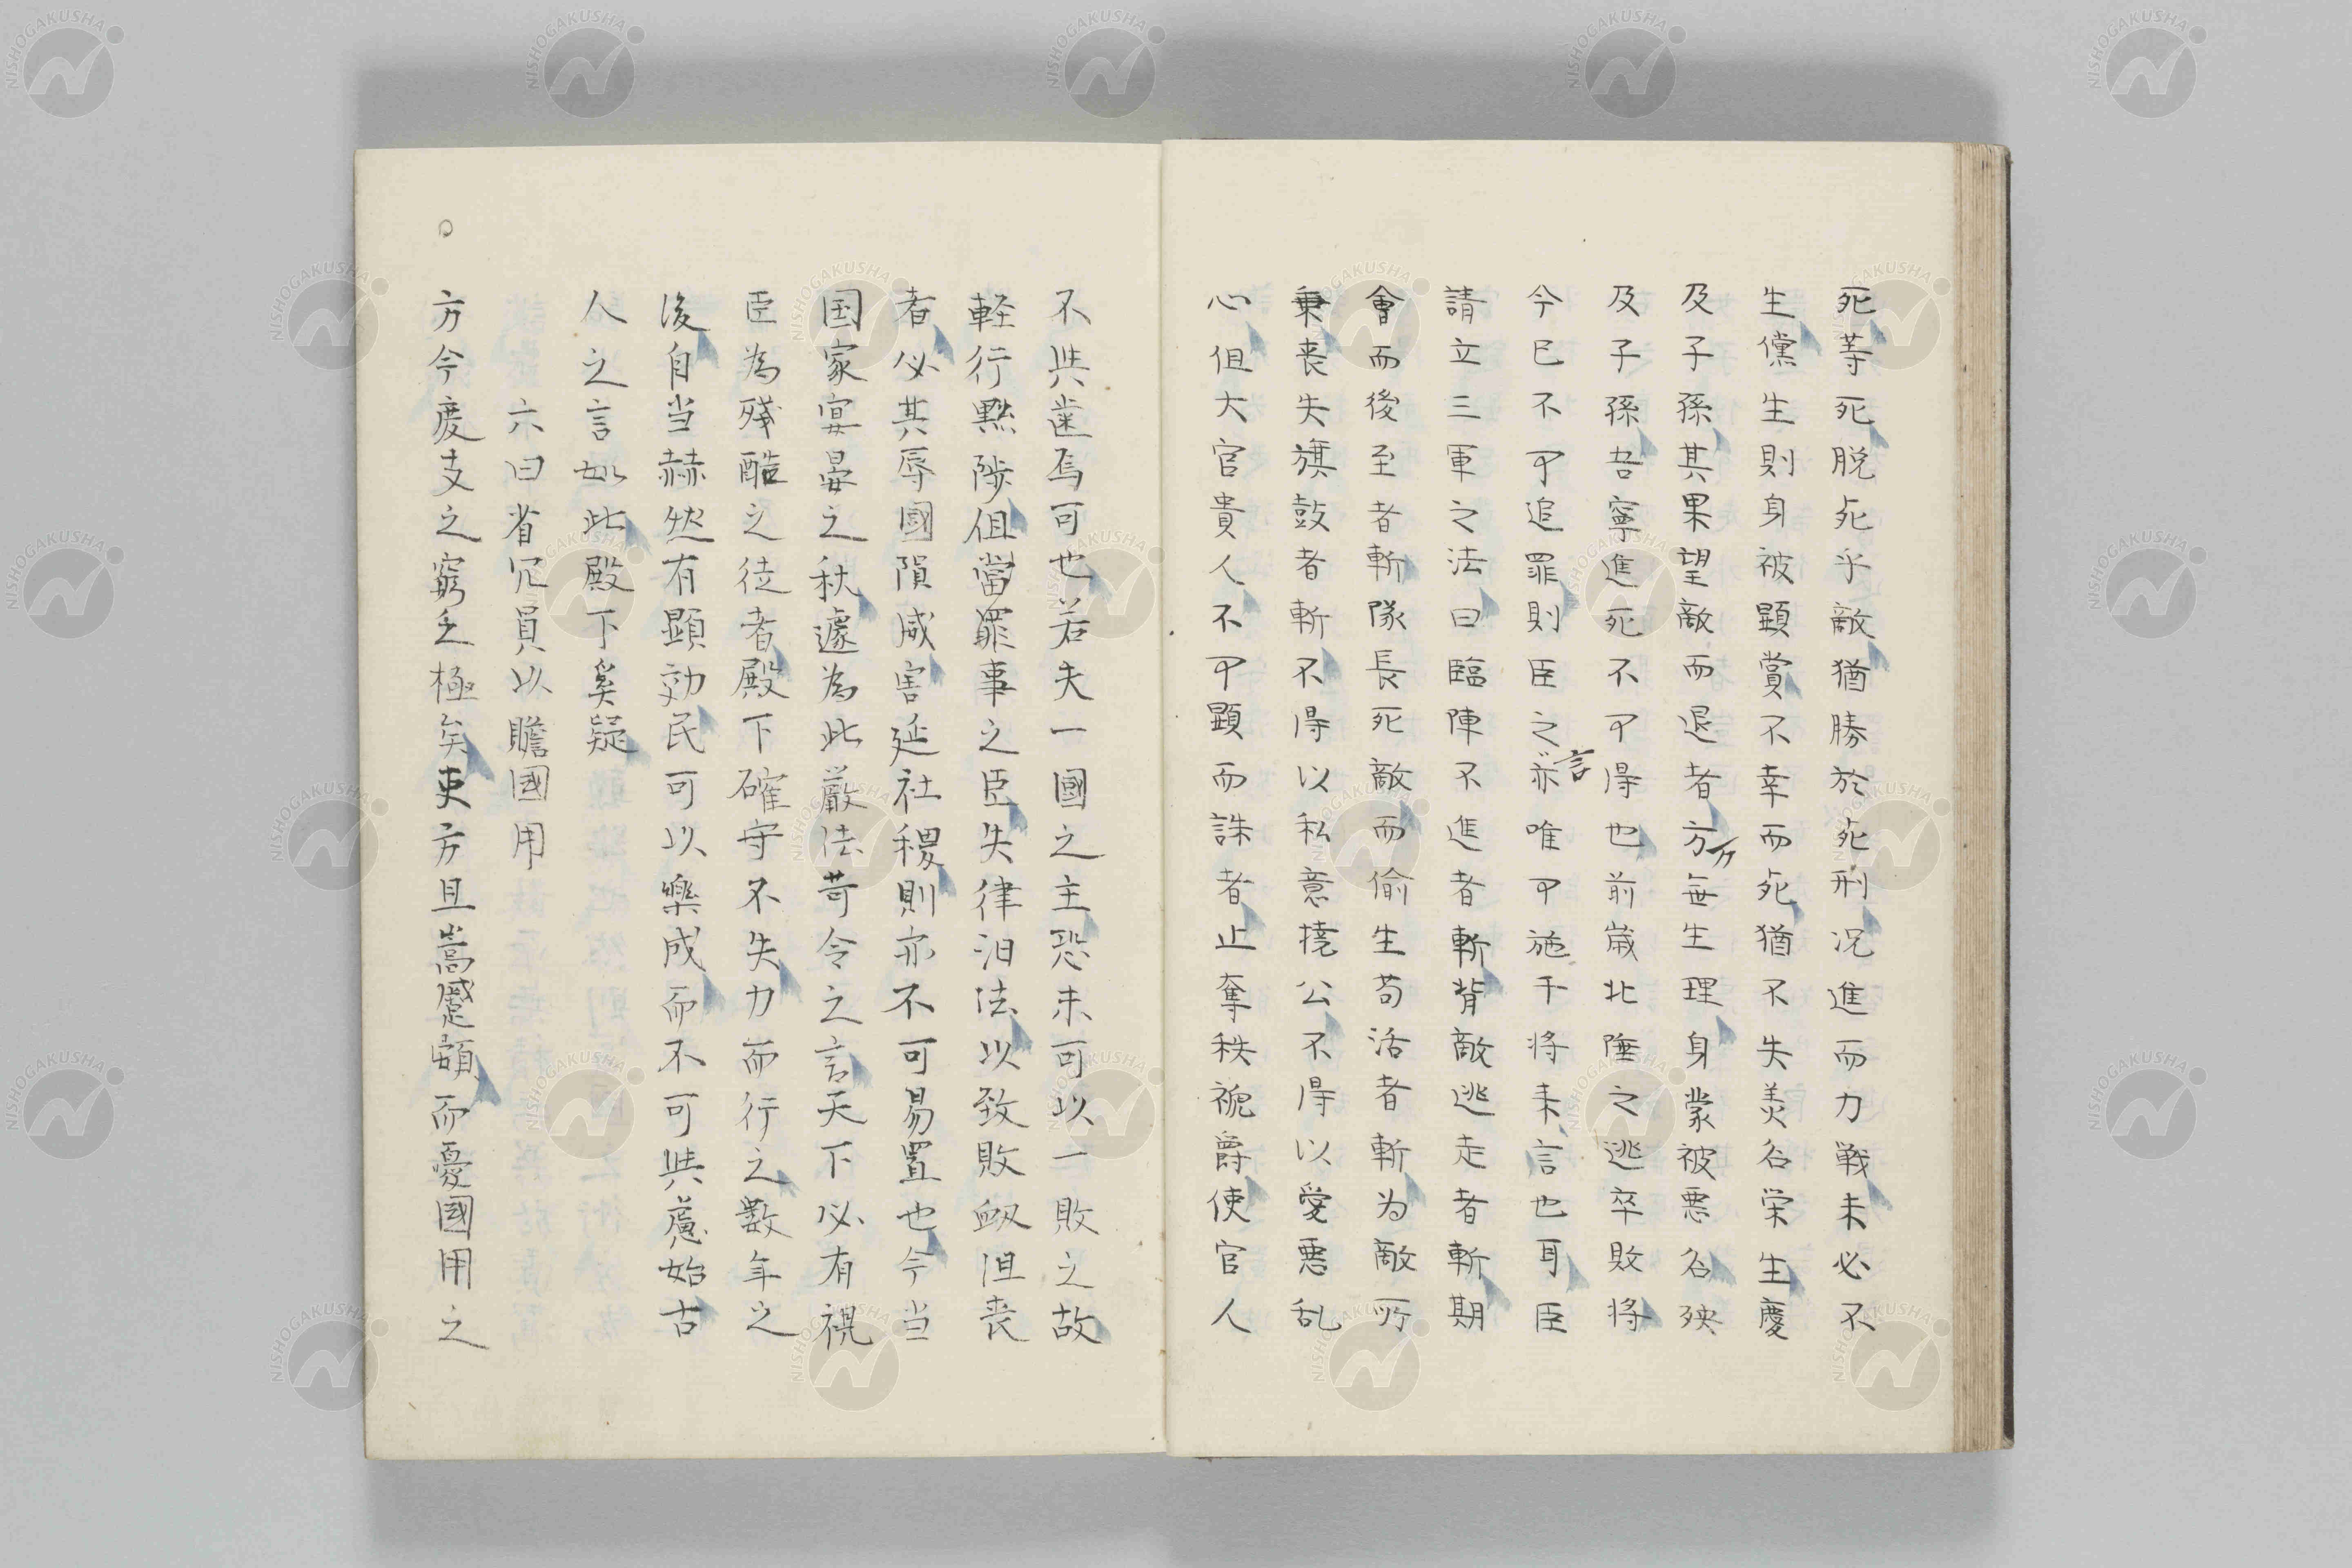 死等死脱死乎敵猶勝於死刑况進而力戦未必不
生儻生則身被顕賞不幸而死猶不失美名栄生慶
及子孫其果望敵而退者方万無生理身蒙被悪名殃
及子孫吾寧進死不可得也前歳北陲之逃卒敗将
今已不可追罪則臣之言亦唯可施于将来言也耳臣
請立三軍之法曰臨陣不進者斬背敵逃走者斬期
會而後至者斬隊長死敵而偷生苟活者斬为敵所
乗喪失旗鼓者斬不得以私意撓公不得以愛悪乱
心但大官貴人不可顕而誅者止奪秩褫爵使官人
不共歯焉可也若夫一國之主恐未可以一敗之故
軽行黙陟但當罪事之臣失律汨法以致敗衂沮喪
者必其辱國隕威害延社稷則亦不可易置也今当
国家宴晏之秋遽為此厳法苛令之言天下必有視
臣為残酷之徒者殿下確守不失力而行之數年之
後自当赫然有顕効民可以樂成而不可共慮始古
人之言如此殿下奚疑
六曰省冗員以贍國用
方今度支之窮乏極矣吏方且嵩蹙頞而憂國用之
NISHOGAKUSHA